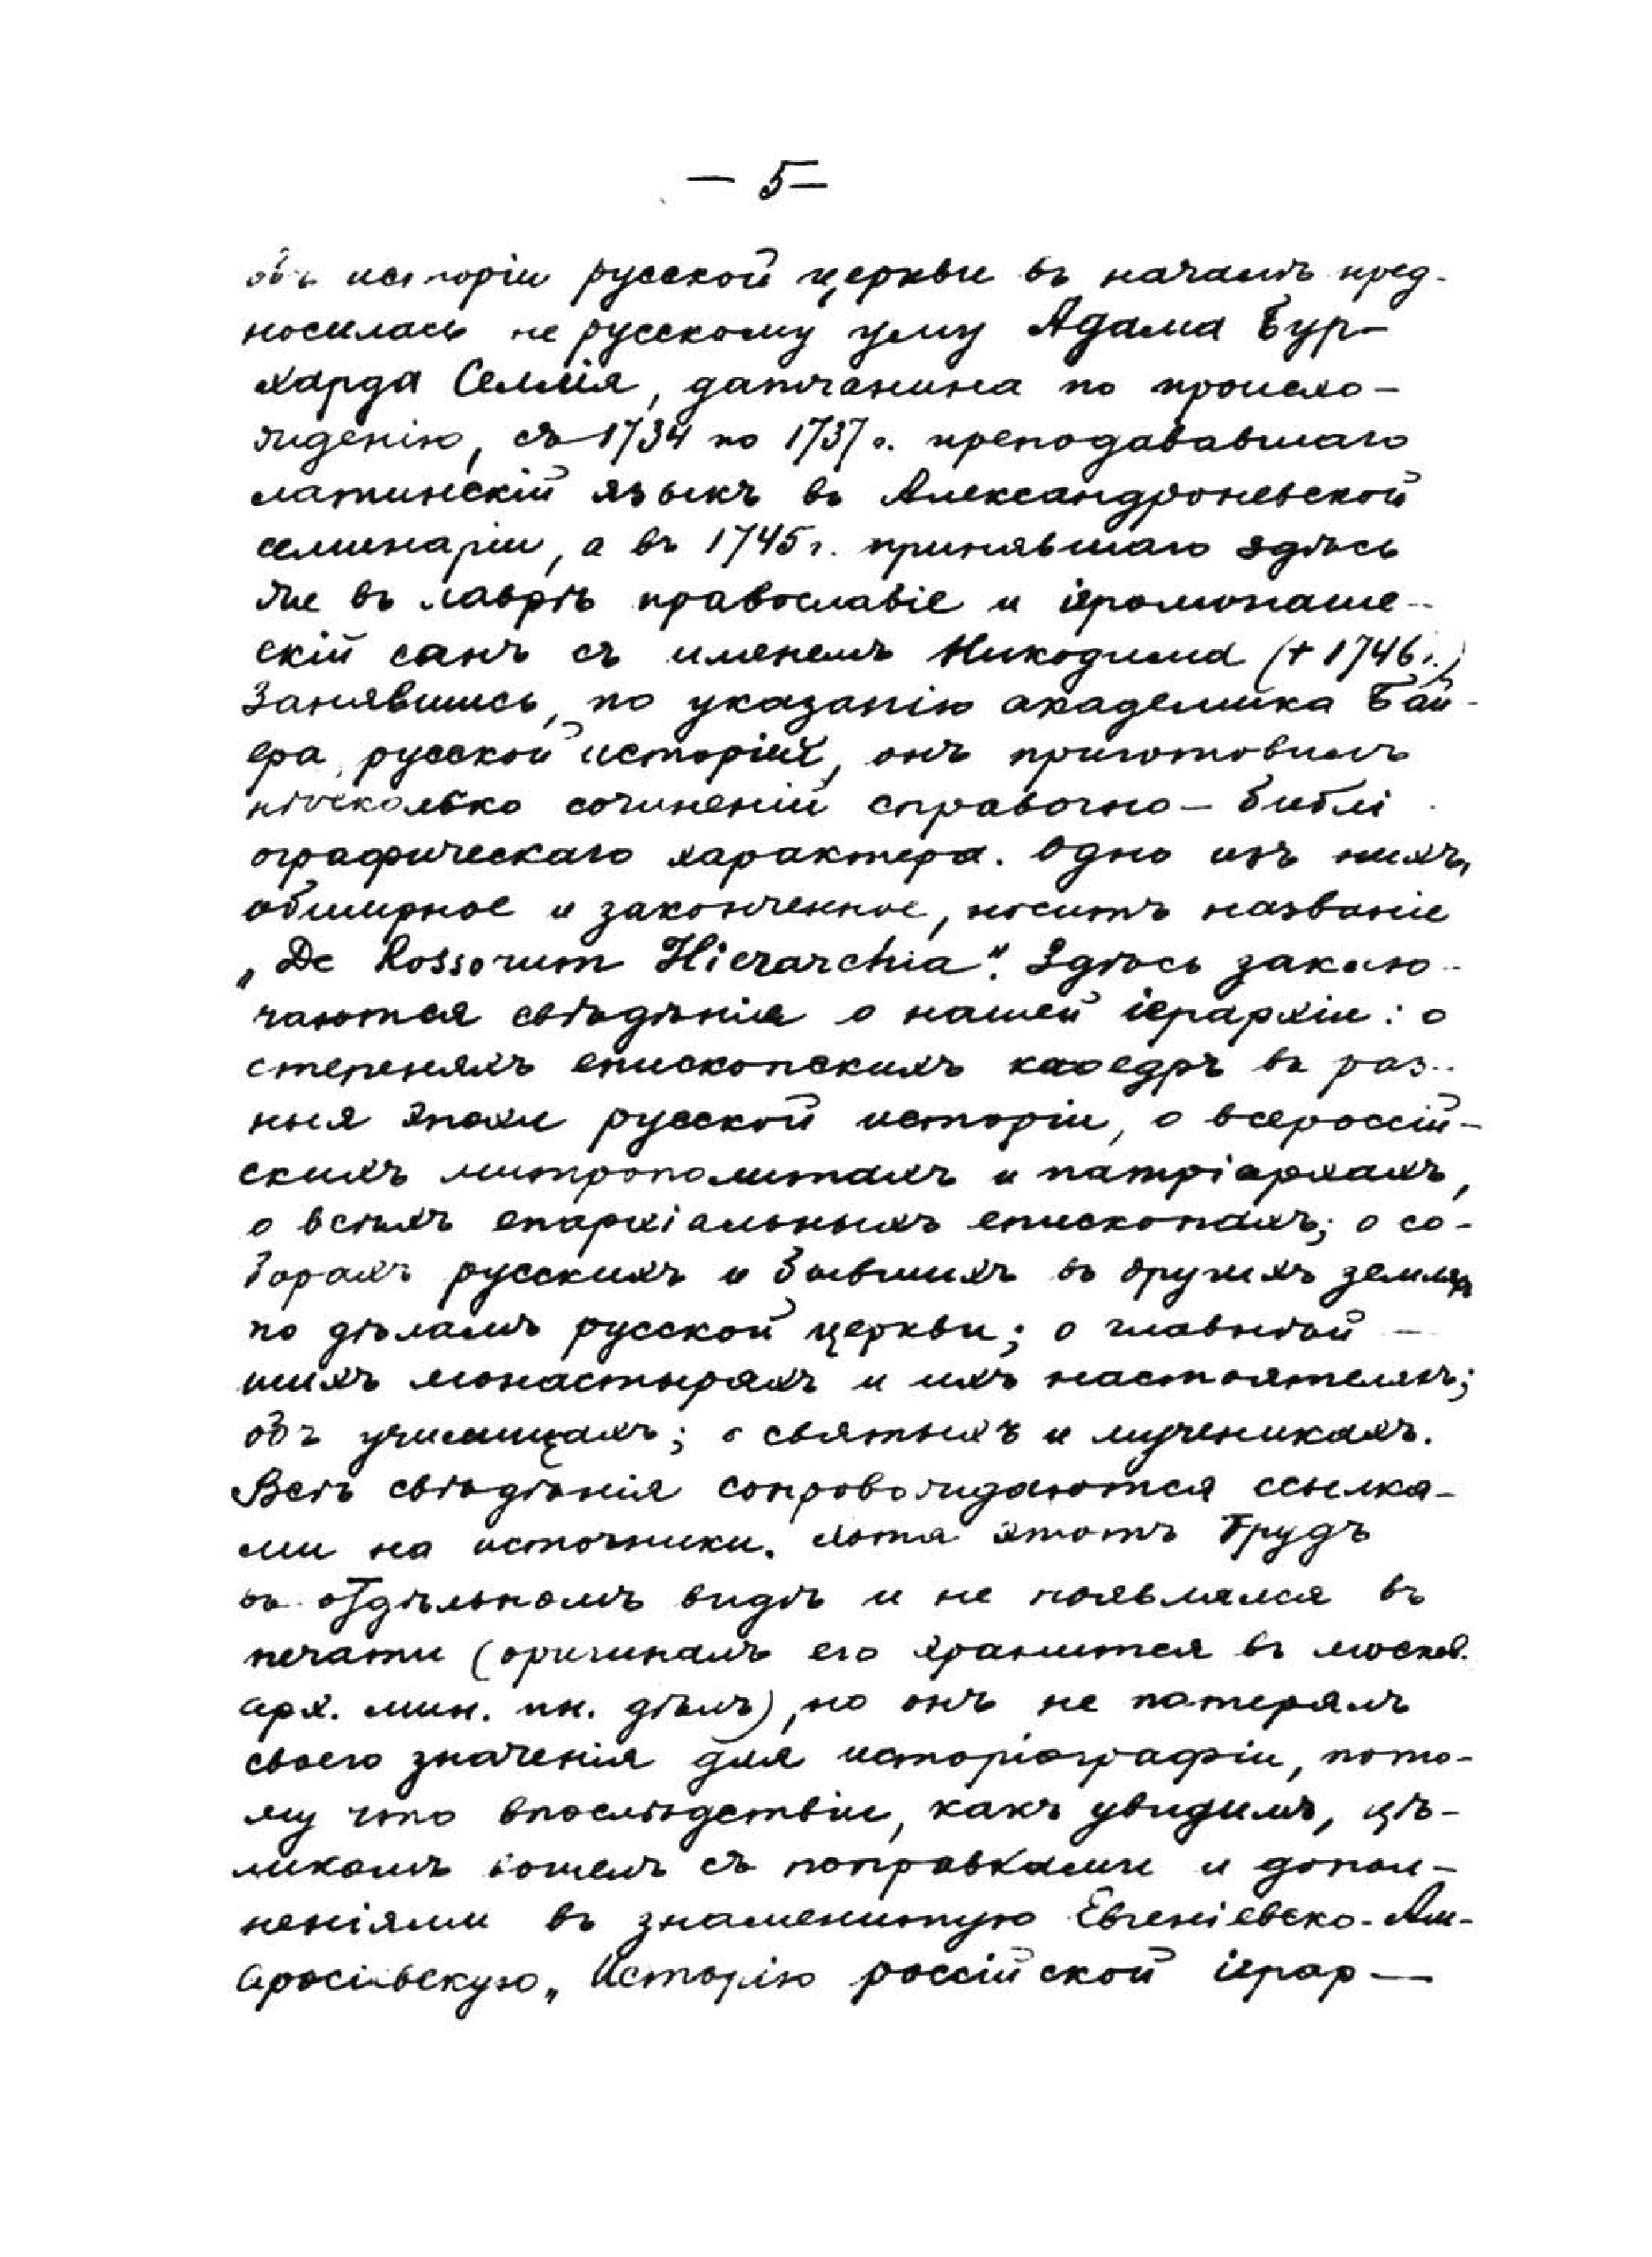 — 5 —
объ исторіи русской церкви въ началѣ пред-
носилась не русскому уму Адама Бур-
харда Селлія, датчанина по происхо-
жденію, съ 1734 по 1737 г. преподававшаго
латинскій языкъ въ Александроневской
семинаріи, а въ 1745 г. принявшаго здѣсь
же въ лаврѣ православіе и іеромонаше-
скій санъ съ именемъ Никодима († 1746 г.)
Занявшись, по указанію академика Бай-
ера, русской исторіей, онъ приготовилъ
нѣсколько сочиненій справочно-библі-
ографическаго характера. Одно изъ нихъ,
обширное и законченное, носитъ названіе
„De Rossorum Hierarchia“. Здѣсь заклю-
чаются свѣдѣнія о нашей іерархіи: о
степеняхъ епископскихъ каѳедръ въ раз-
ныя эпохи русской исторіи, о всероссій-
скихъ митрополитахъ и патріархахъ,
о всѣхъ епархіальныхъ епископахъ; о со-
борахъ русскихъ и бывшихъ въ другихъ земляхъ
по дѣламъ русской церкви; о главнѣй-
шихъ монастыряхъ и ихъ настоятеляхъ;
объ училищахъ; о святыхъ и мученикахъ.
Всѣ свѣдѣнія сопровождаются ссылка-
ми на источники. Хотя этотъ трудъ
въ отдѣльномъ видѣ и не появлялся въ
печати (оригиналъ его хранится въ москов.
арх. мин. ин. дѣлъ), но онъ не потерялъ
своего значенія для исторіографіи, пото-
му что впослѣдствіи, какъ увидимъ, цѣ-
ликомъ вошелъ съ поправками и допол-
неніями въ знаменитую Евгеніевско-Ам-
вросіевскую „Исторію россійской іерар-